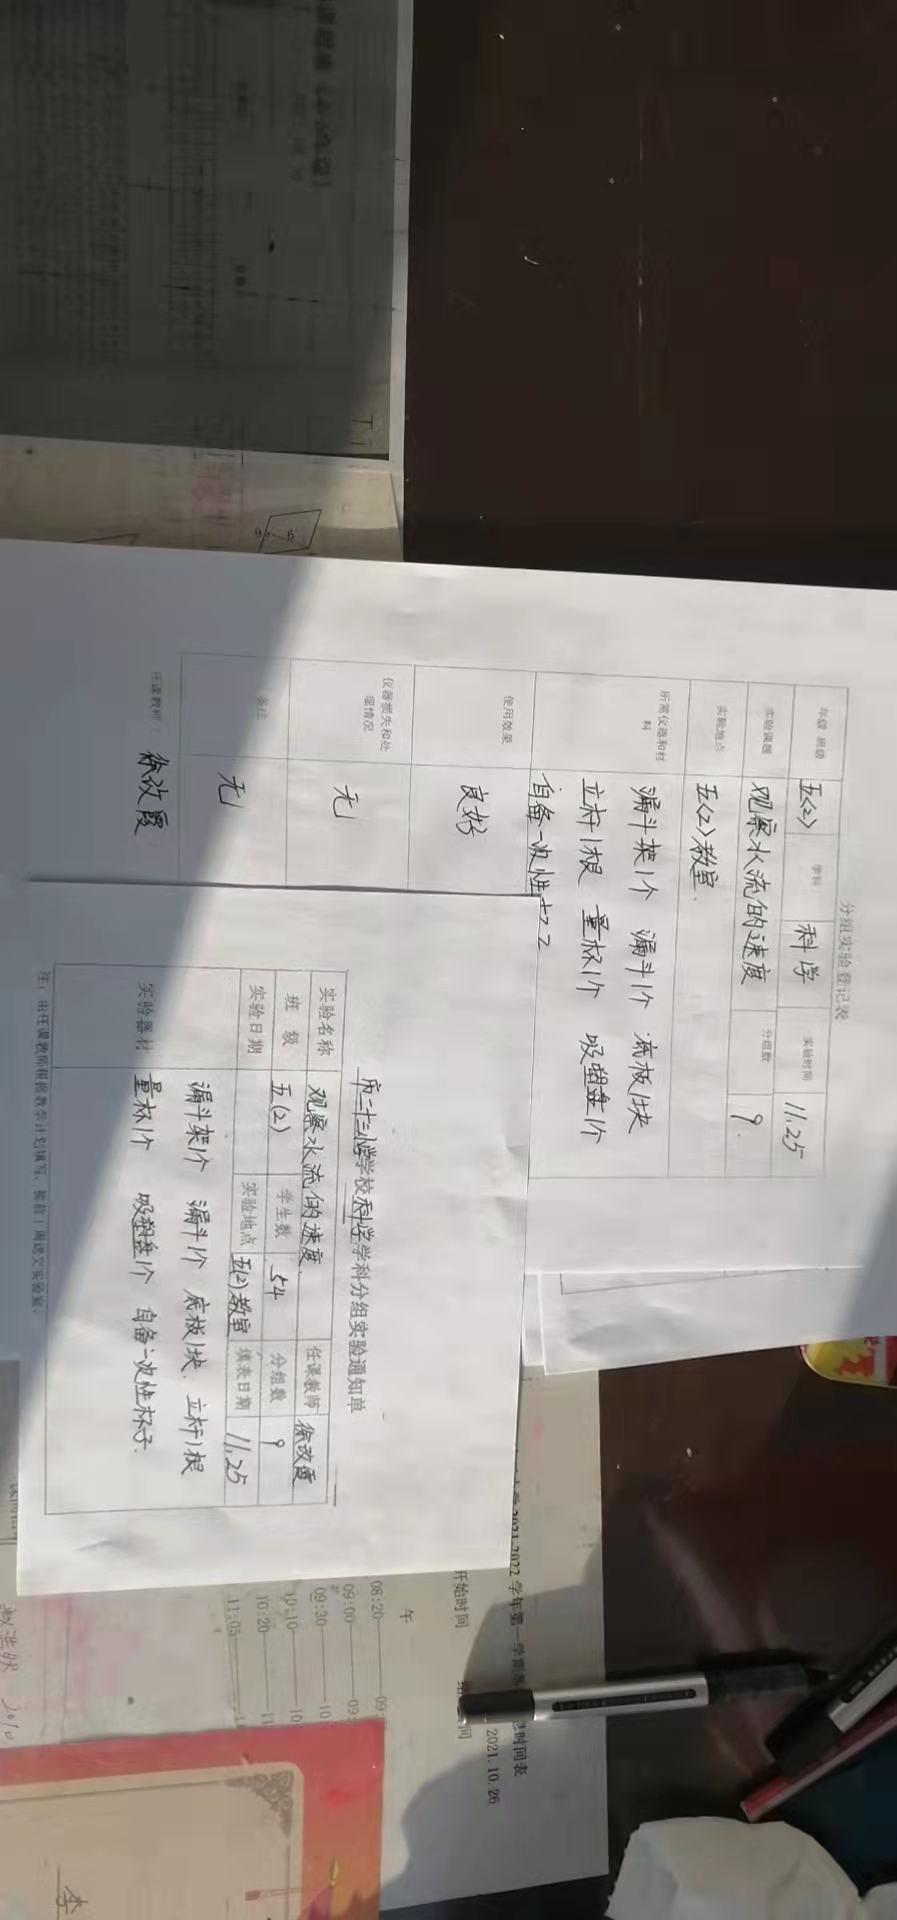 分组实验登记表
年级 班级 五(2) 学科 科学 实验时间 11.25
实验课题 观察水流的速度 分组数 9.
实验地点 五(2)教室.
所需仪器和材料
漏斗架1个 漏斗1个 底板1块
立杆1根 量杯1个 吸塑盘1个
自备一次性
使用效果 良好
仪器损失和处理情况 无
备注 无
任课教师: 徐改霞
市二十三小学学校科学学科分组实验通知单
实验名称 观察水流的速度 任课教师 徐改霞
班 级 五(2) 学生数 54 分组数 9
实验日期 实验地点 五(2)教室 填表日期 11.25
实验器材
漏斗架1个 漏斗1个 底板1块. 立杆1根
量杯1个 吸塑盘1个 自备一次性杯子.
注:由任课教师根据教学计划填写,提前1周送交实验室。
2021-2022 学年第一学期
息时间表
2021.10.26
开始时间
午
08:20
09:00
09:30
10:10
10:20
11:05
李